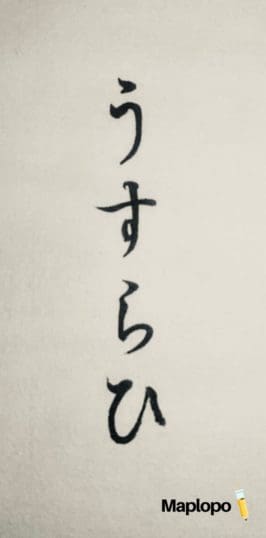 うすらひ
Maplopo